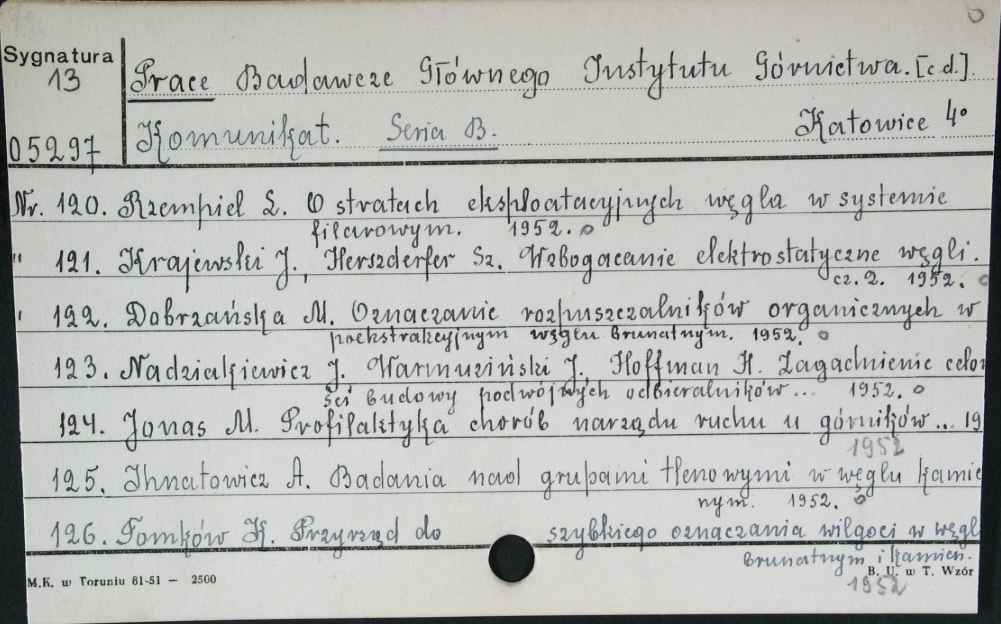 Sygnatura
13
05297
Prace Badawcze Głównego Instytutu Górnictwa. [c.d.].
Komunikat. Seria B. Katowice 4°
Nr. 120. Rzempiel L. O stratach eksploatacyjnych węgla w systemie
filarowym. 1952.
" 121. Krajewski J., Herszderfer Sz. Wzbogacanie elektrostatyczne węgli.
cz. 2. 1952.
" 122. Dobrzańska M. Oznaczanie rozpuszczalników organicznych w
poekstrakcyjnym węglu brunatnym. 1952.
123. Nadziakiewicz J. Warmuziński J. Hoffman H. Zagadnienie celow
ści budowy podwójnych odbieralników... 1952.
124. Jonas M. Profilaktyka chorób narządu ruchu u górników... 19
1952
125. Ihnatowicz A. Badania nad grupami tlenowymi w węglu kamie
nym. 1952.
126. Tomków K. Przyrząd do szybkiego oznaczania wilgoci w węgl
brunatnym i kamien.
1952
M.K. w Toruniu 81-51 — 2500
B. U. w T. Wzór